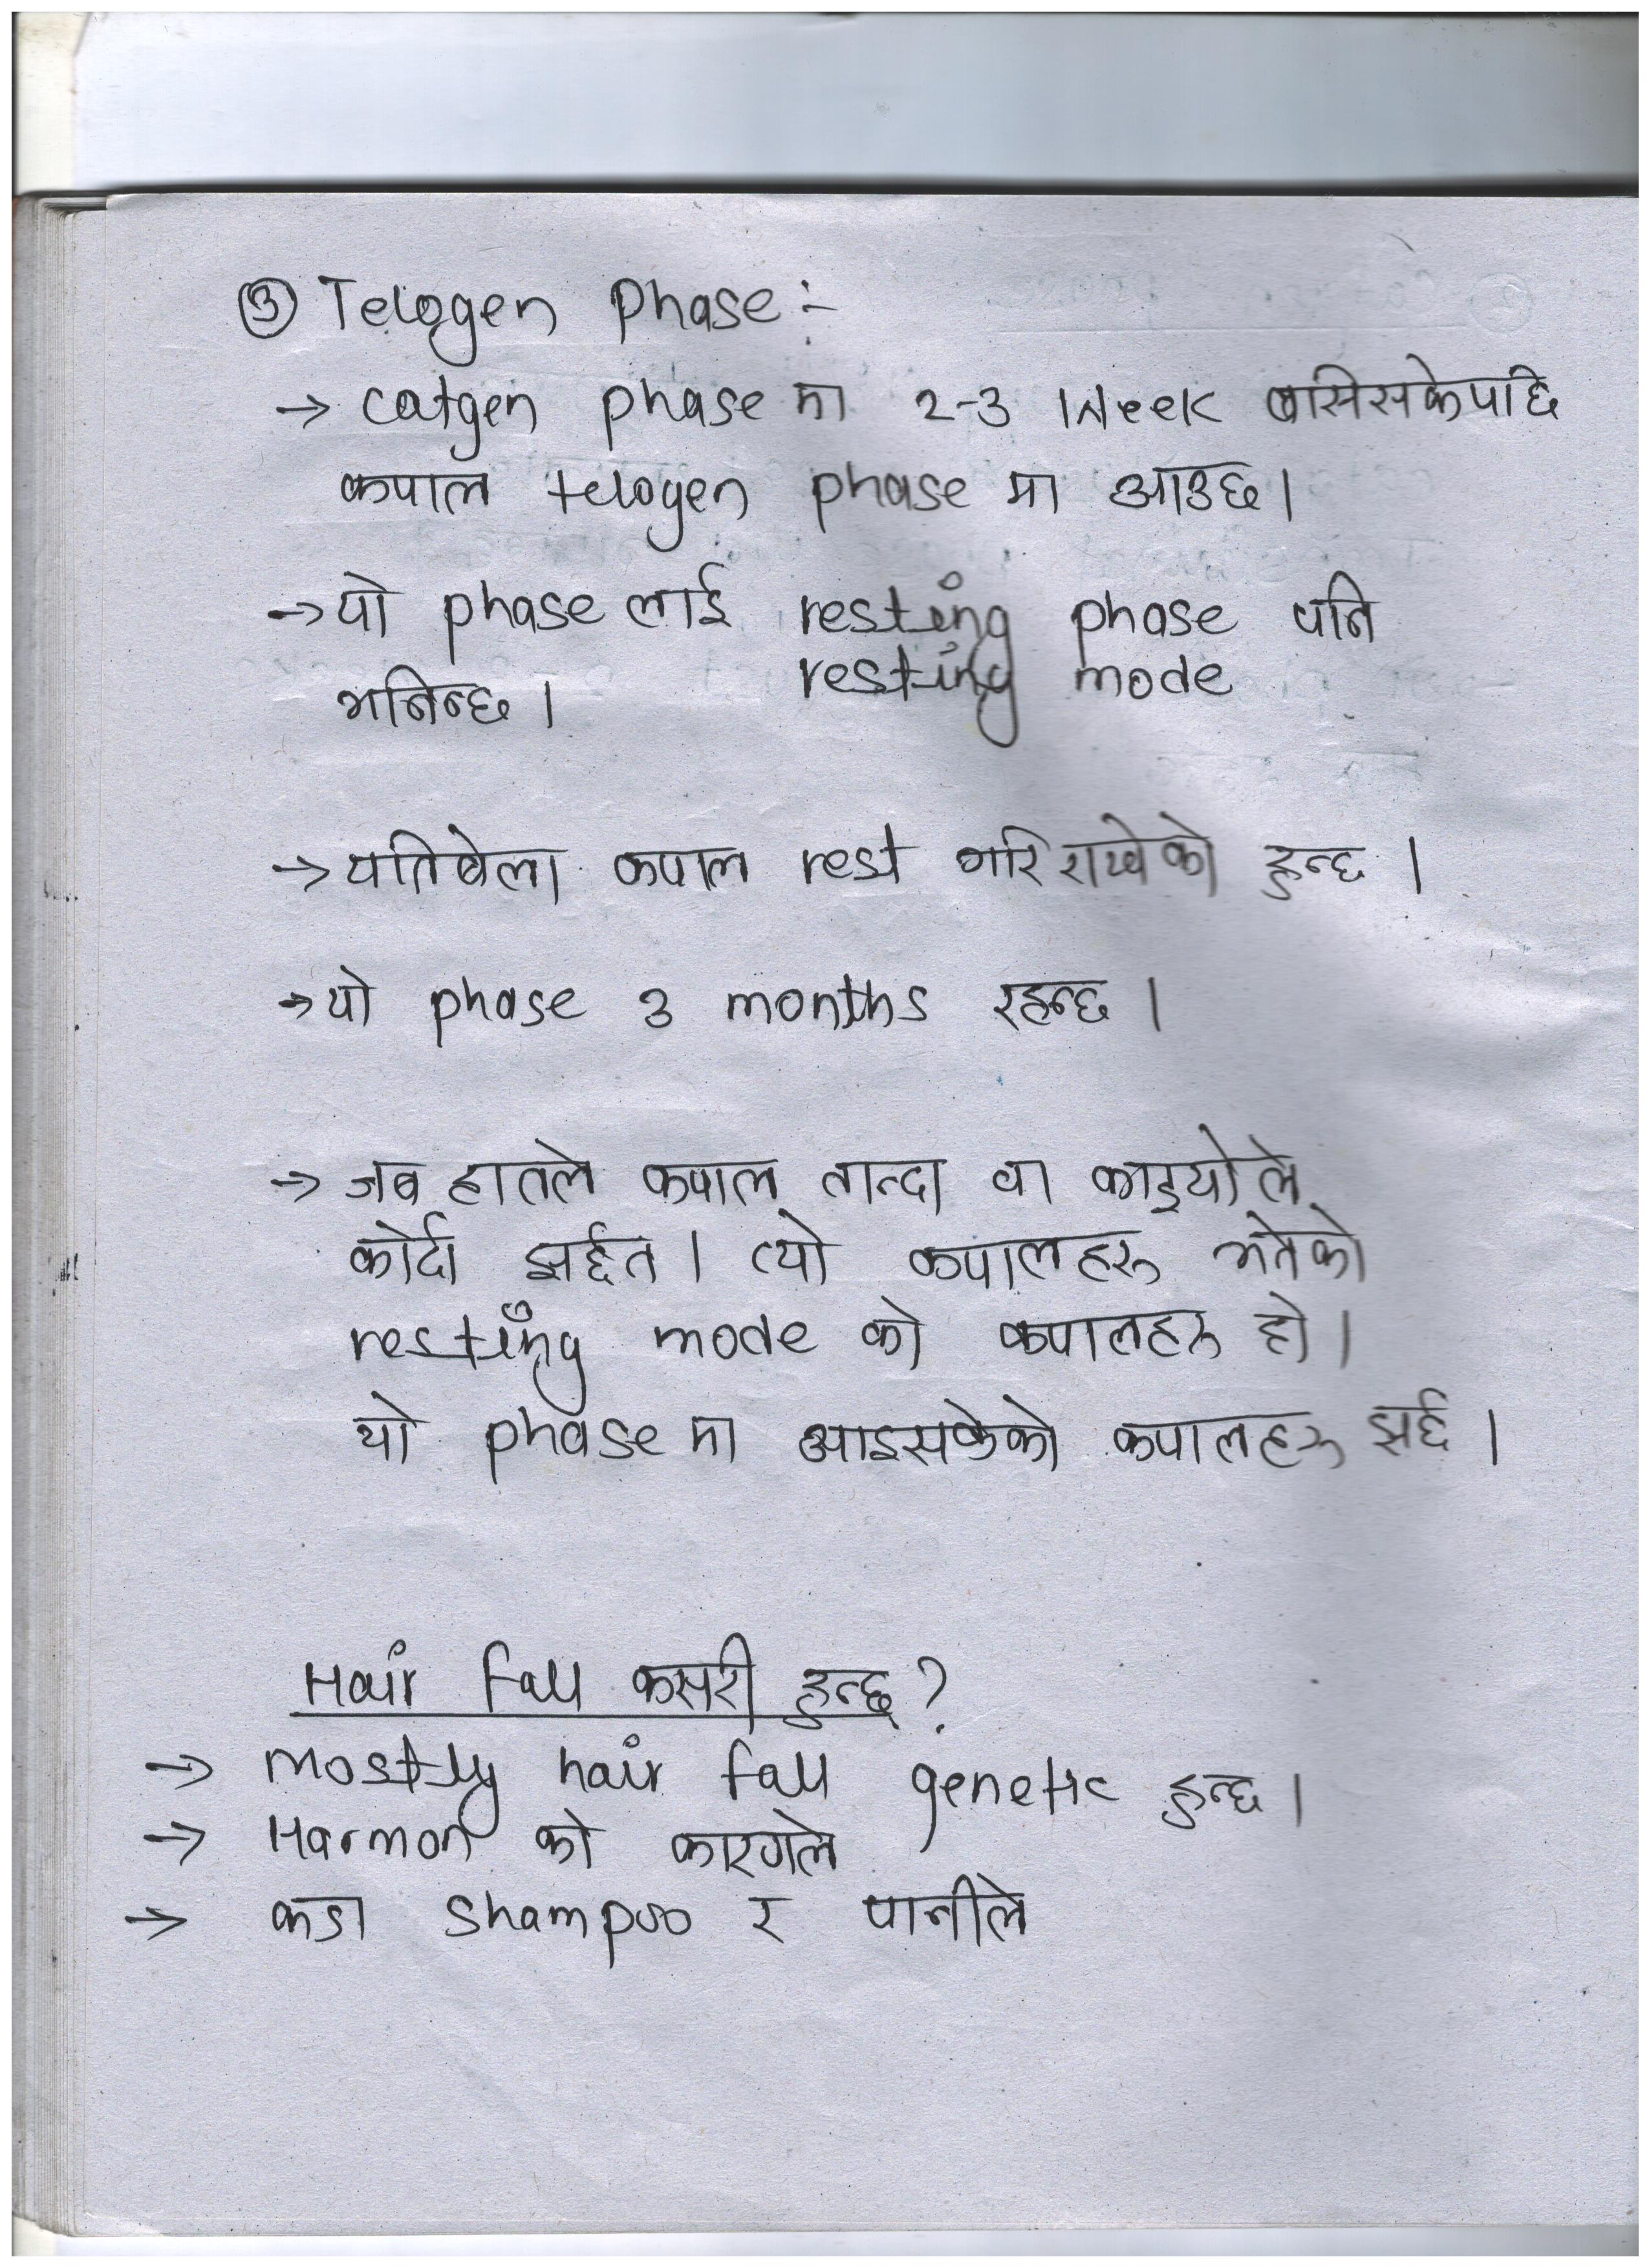 ③ Telogen Phase :-
→ Catgen phase मा 2-3 Week बसिसकेपछि
कपाल telogen phase मा आउछ।
→ यो phase लाई resting phase पनि
resting mode
भनिन्छ।
→ यतिबेला कपाल rest गरिराखेको हुन्छ।
→ यो phase 3 months रहन्छ।
→ जब हातले कपाल तान्दा वा काइयोले
कोर्दा झर्छत। त्यो कपालहरु भनेको
resting mode को कपालहरु हो।
यो phase मा आइसकेको कपालहरु झर्छ।
Hair fall कसरी हुन्छ?
→ mostly hair fall genetic हुन्छ।
→ Harmon को कारणले
→ कडा shampoo र पानीले